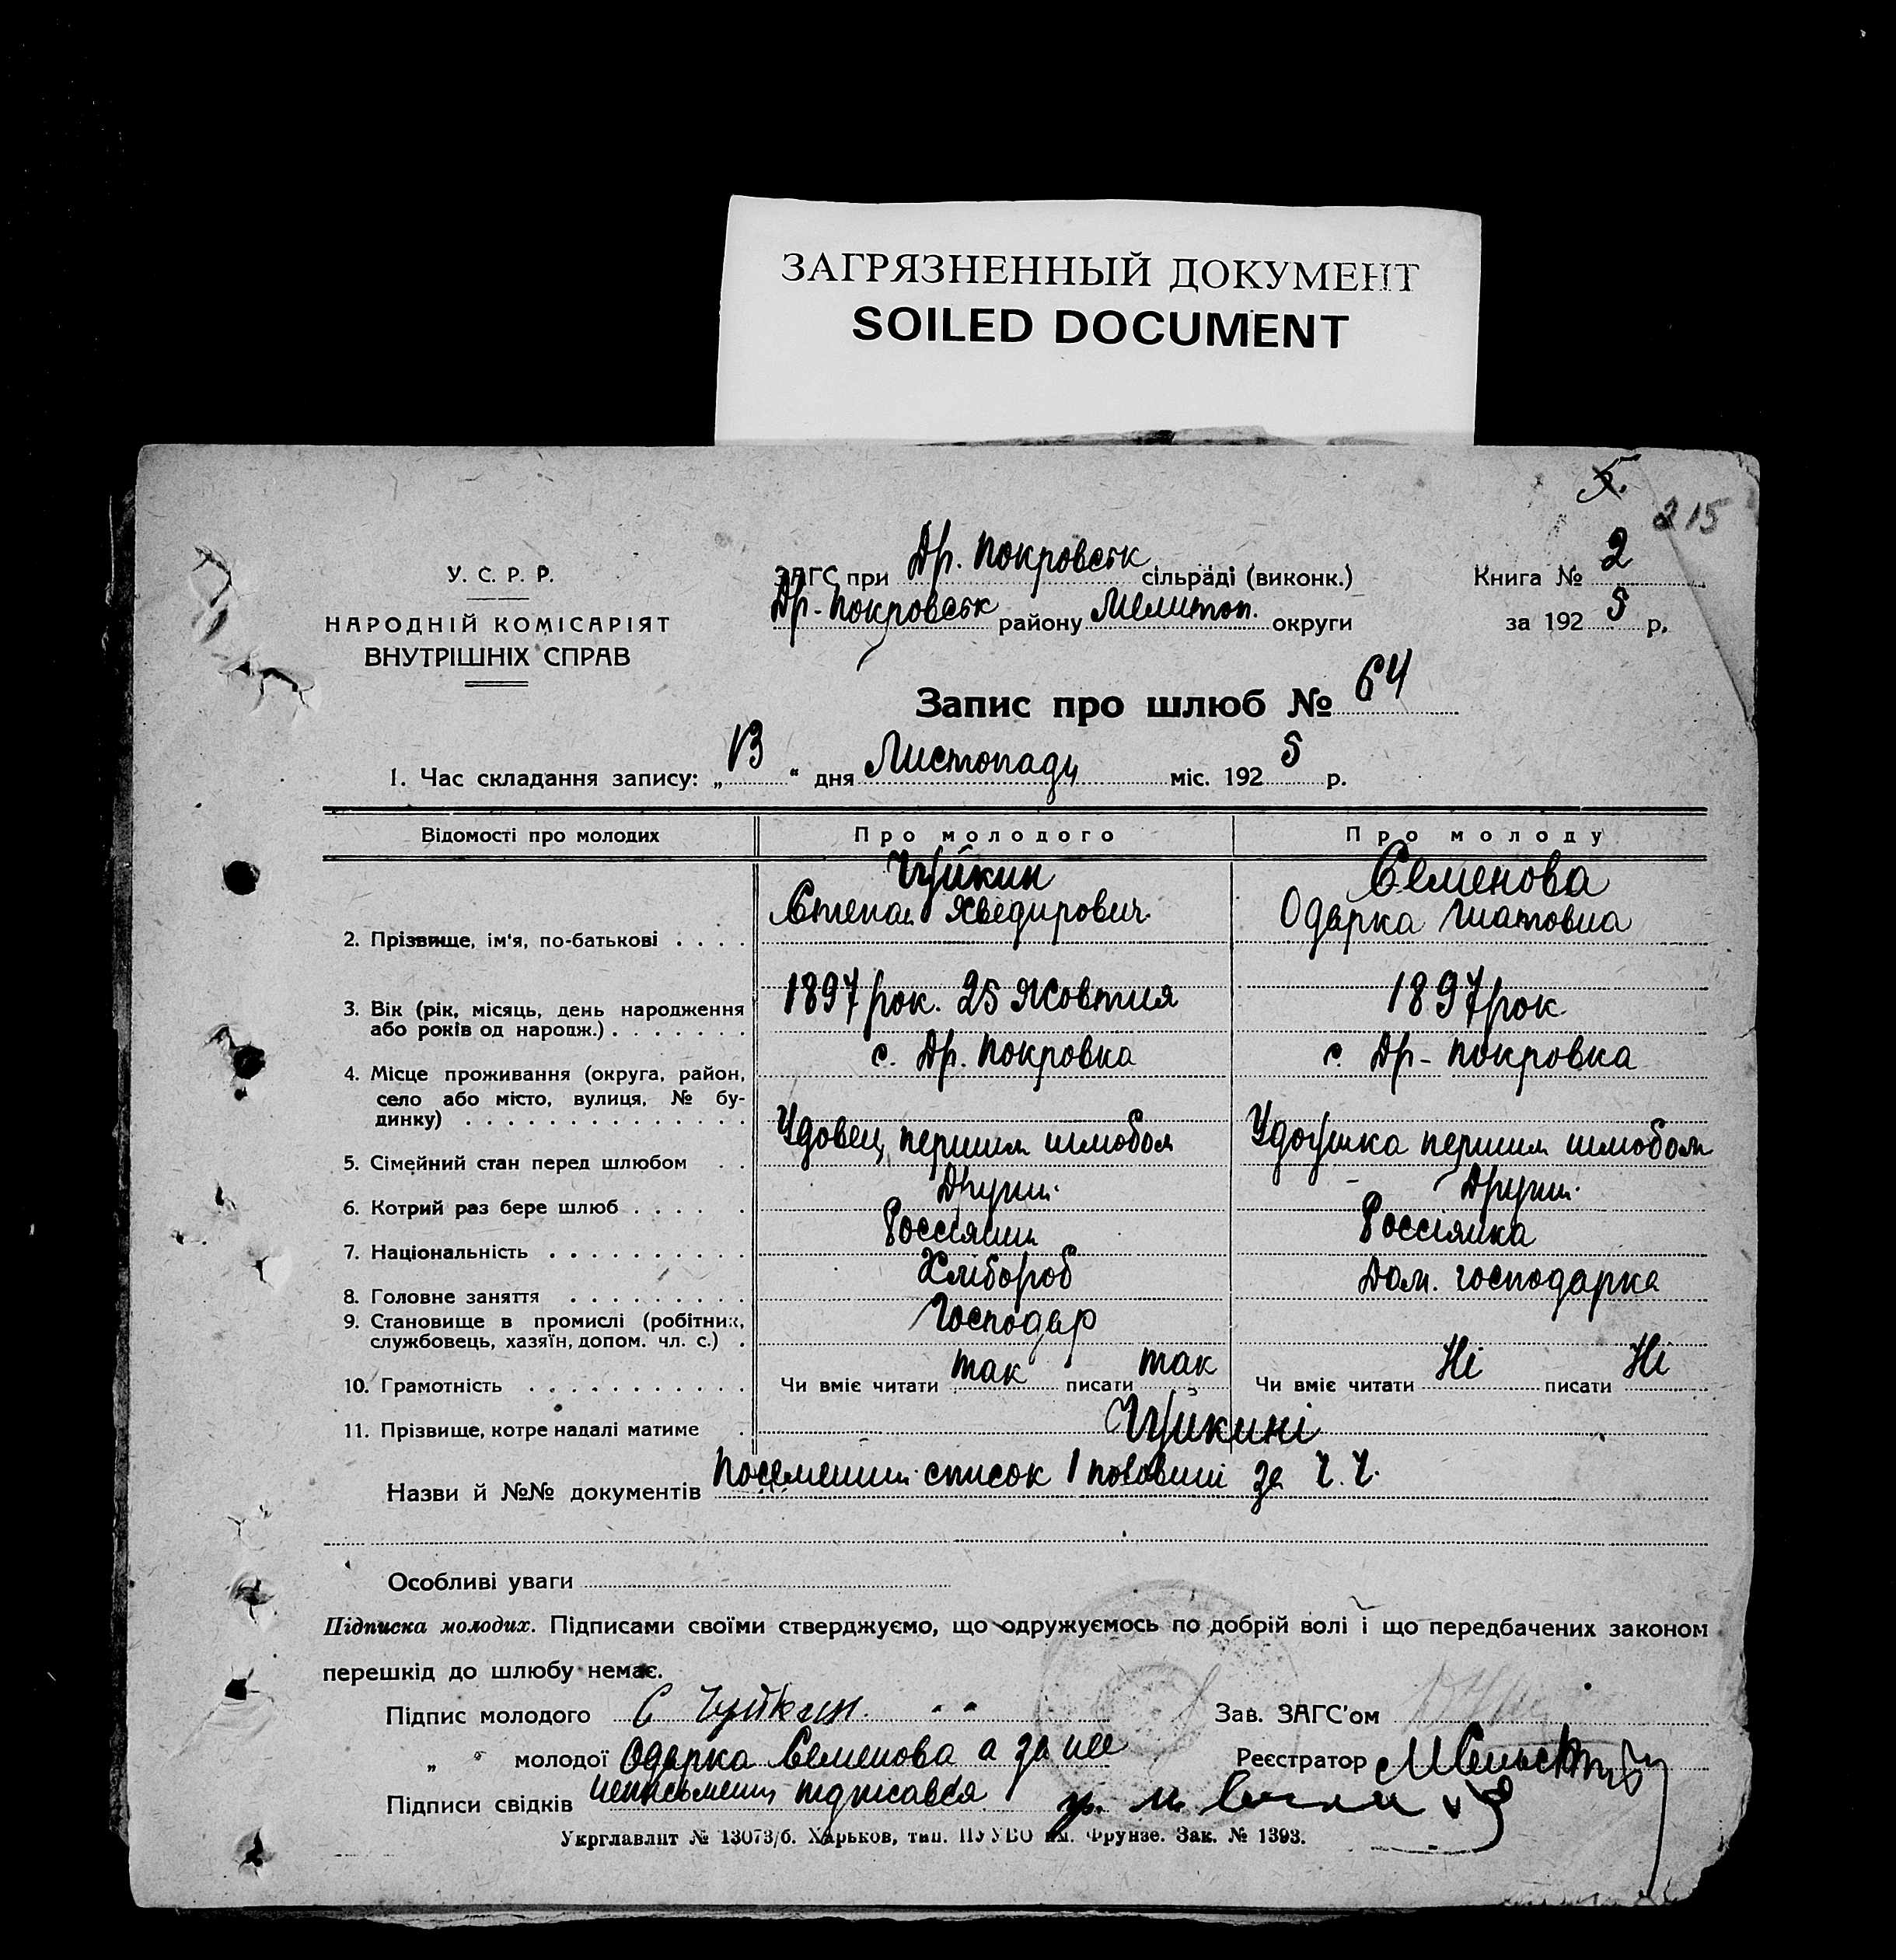 ЗАГРЯЗНЕННЫЙ ДОКУМЕНТ
SOILED DOCUMENT
215
У. С. Р. Р.
НАРОДНІЙ КОМІСАРІЯТ
ВНУТРІШНІХ СПРАВ
ЗАГС при Др. Покровськ сільраді (виконк.)
Др-Покровськ району Мелитоп. округи
Книга № 2
за 1925 р.
Запис про шлюб № 64
1. Час складання запису: „13“ дня Листопаду міс. 1925 р.
Відомості про молодих Про молодого Про молоду
2. Прізвище, ім'я, по-батькові . . . .
Чуйкин
Степан Хведирович
Семенова
Одарка Гнатовна
3. Вік (рік, місяць, день народження
або років од народж.) . . . . . . .
1897 рок. 25 Жовтня
1897 рок.
4. Місце проживання (округа, район,
село або місто, вулиця, № бу-
динку) . . . . . . . . . . . . . .
с. Др. Покровка
с. Др-Покровка
5. Сімейний стан перед шлюбом . .
Удовец першим шлюбом
Удоушка першим шлюбом
6. Котрий раз бере шлюб . . . . .
Другим.
Другим.
7. Національність . . . . . . . . . .
Россіянин
Россіянка
8. Головне заняття . . . . . . . . .
Хлібороб
Дом. господарка
9. Становище в промислі (робітник,
службовець, хазяїн, допом. чл. с.) .
Господар
10. Грамотність . . . . . . . . . . .
Чи вміє читати так писати так
Чи вміє читати Ні писати Ні
11. Прізвище, котре надалі матиме .
Чуйкині
Назви й №№ документів Посемейний список 1 половини за Ч. Ч.
Особливі уваги
Підписка молодих. Підписами своїми стверджуємо, що одружуємось по добрій волі і що передбачених законом
перешкід до шлюбу немає.
Підпис молодого С Чуйкин. Зав. ЗАГС'ом
„ „ молодої Одарка Семенова а за нее Реєстратор
Підписи свідків неписьмену підписався
Укрглавлит № 13073/б. Харьков, тип. ПУУВО им. Фрунзе. Зак. № 1393.